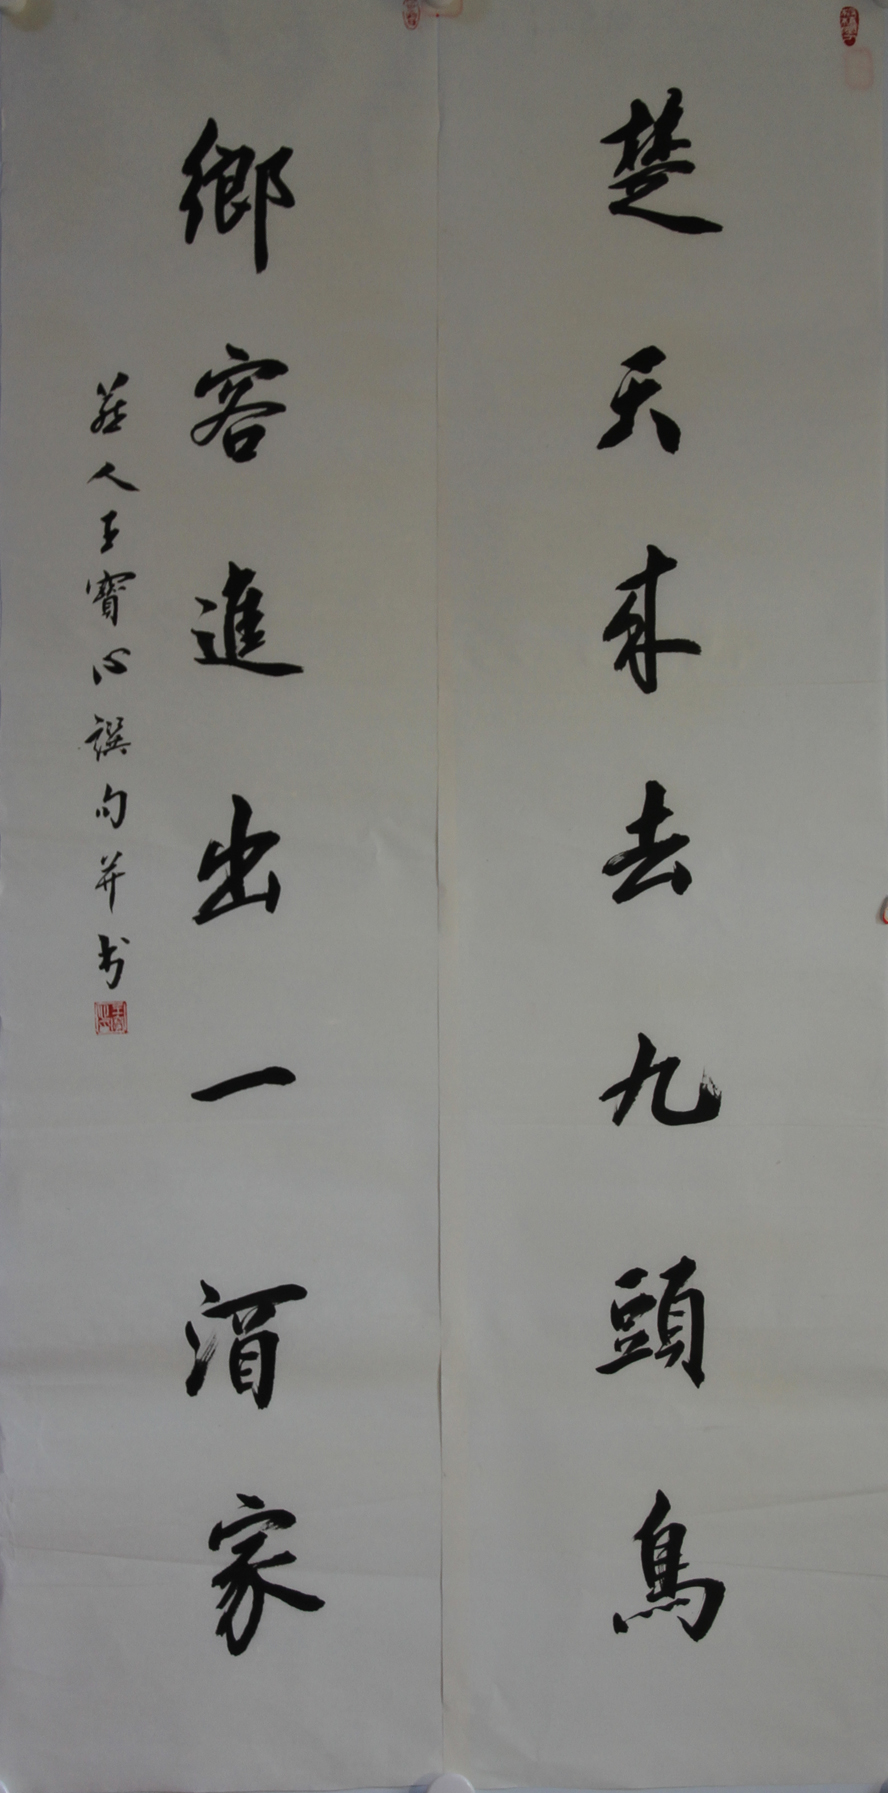 楚天來去九頭鳥
鄉客進出一酒家
人王寶心譔句并书